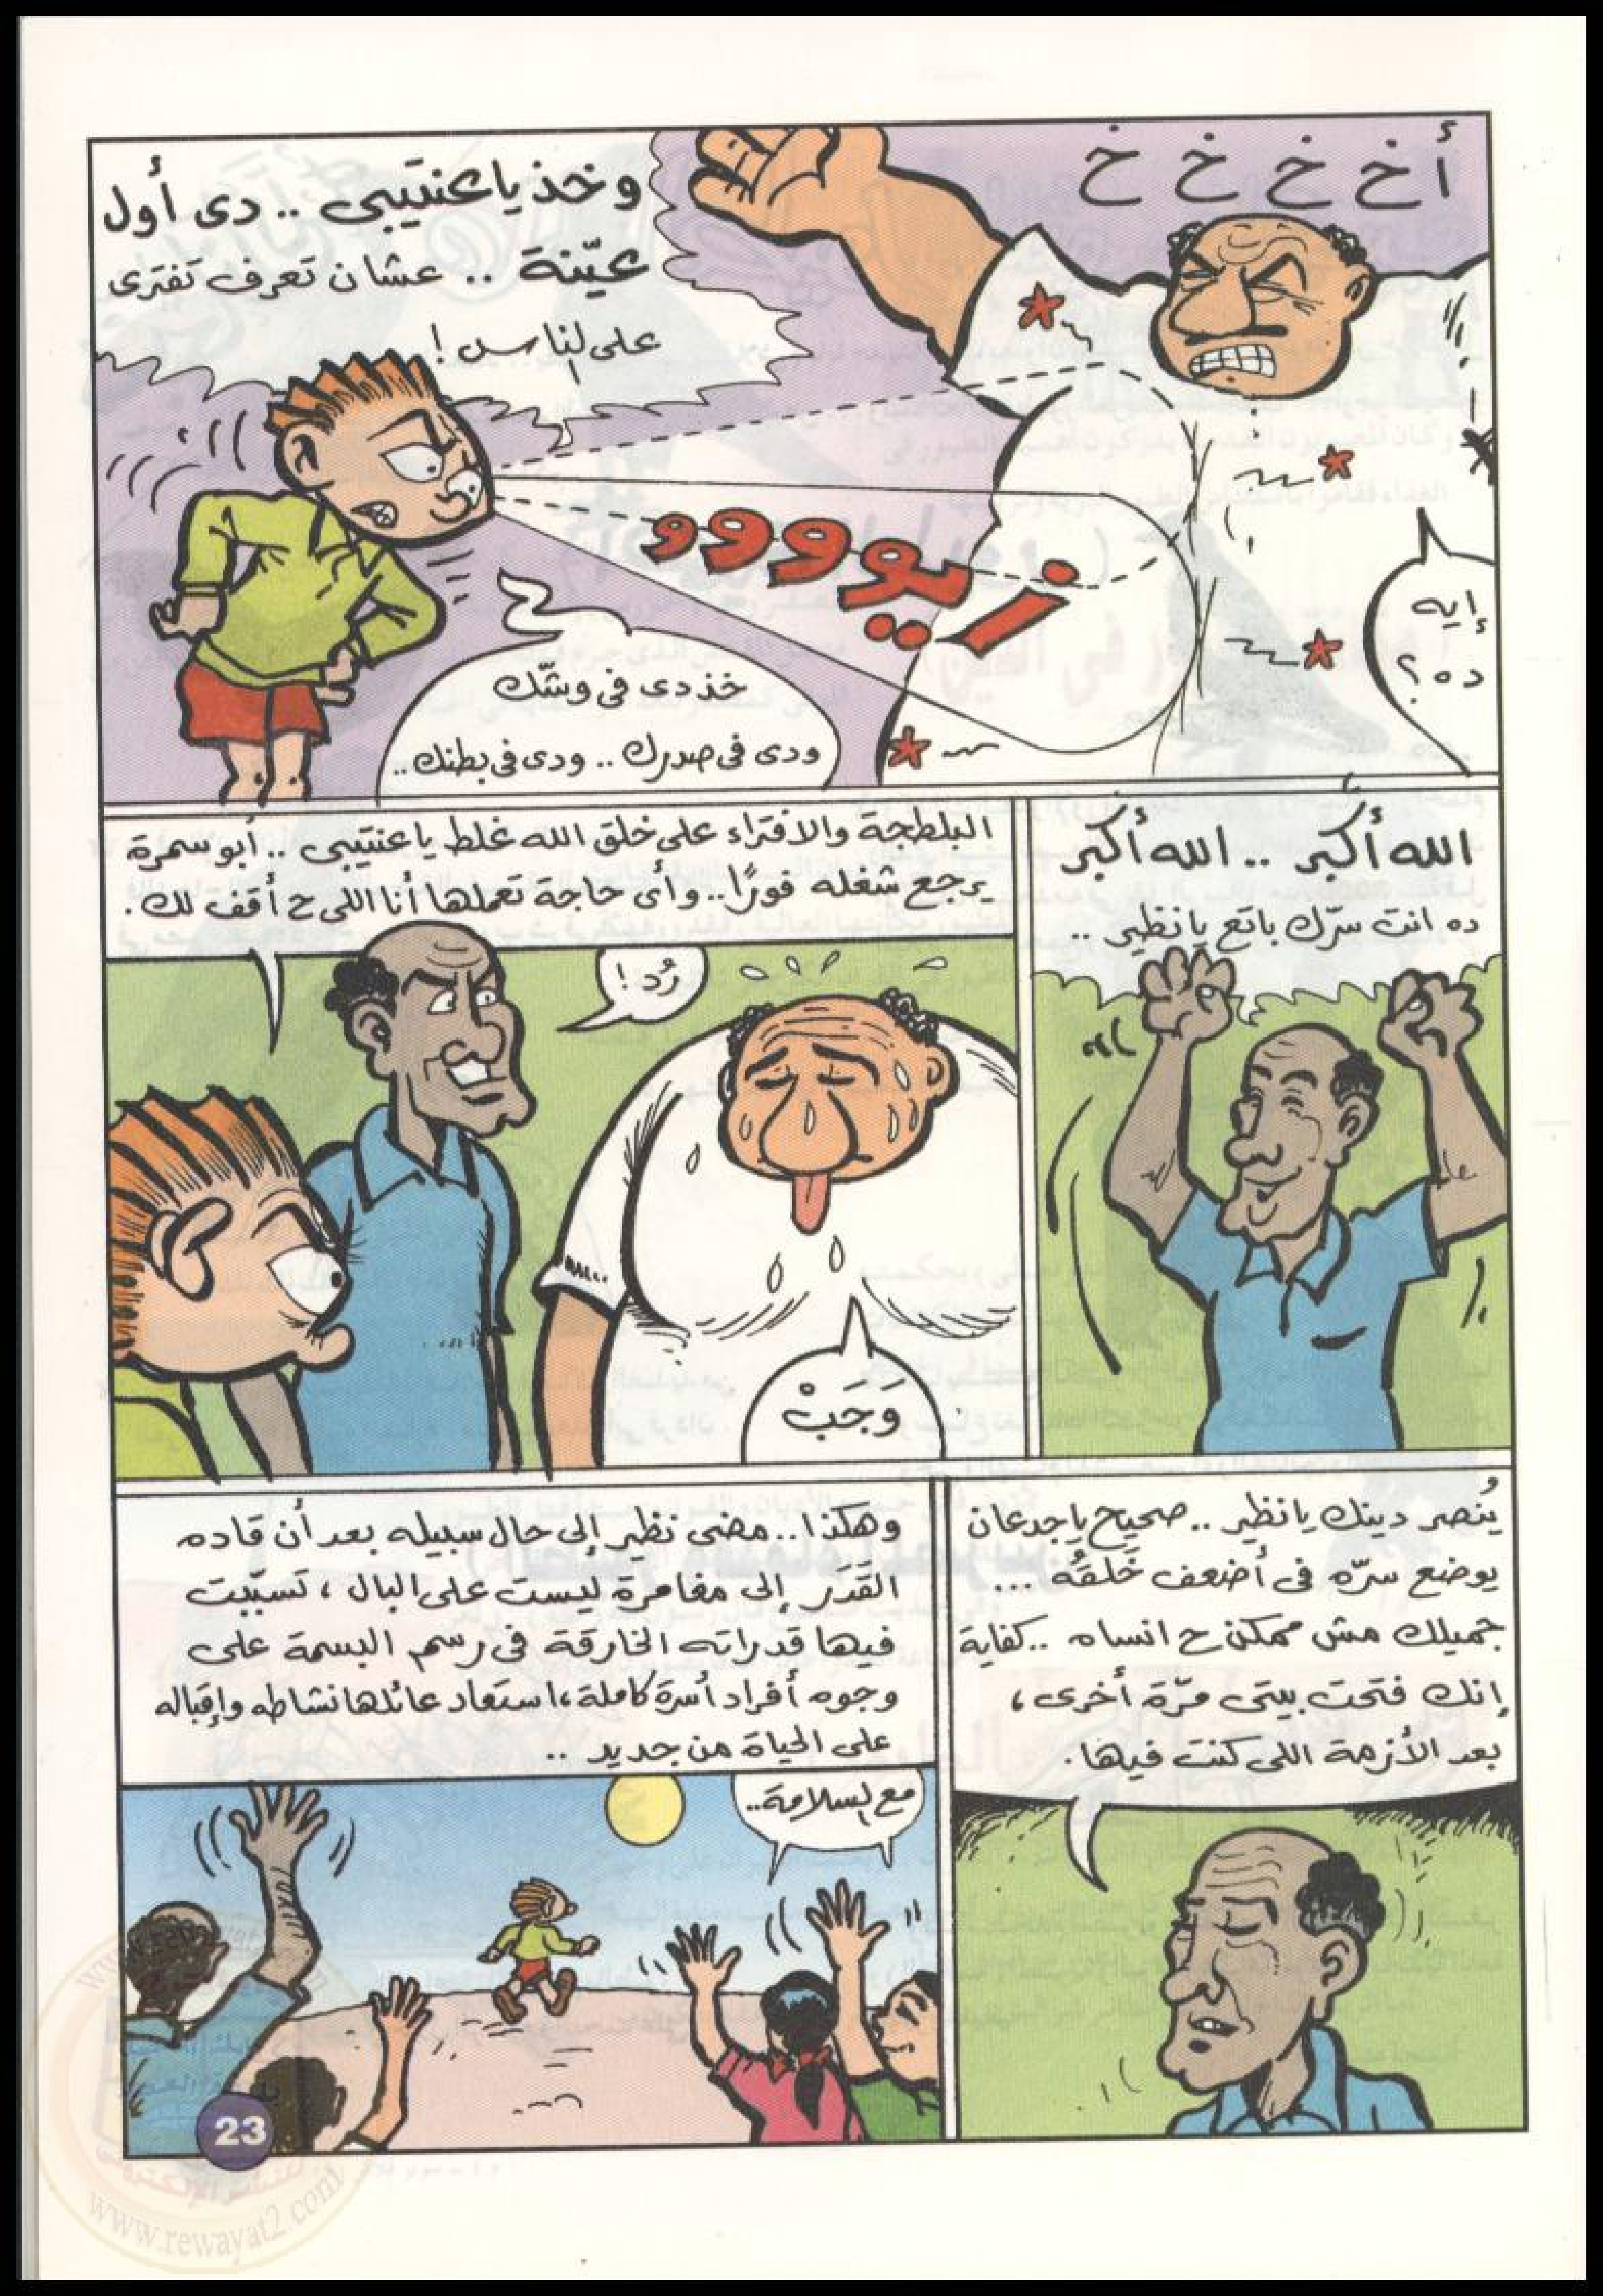 أ خ خ خ خ
وخذ ياعنتيبى .. دى أول
عيّنة .. عشان تعرف تفترى
على الناس !
زيوووو
إيه
ده ؟
خذ دى فى وشّك
ودى فى صدرك .. ودى فى بطنك ..
الله أكبر .. الله أكبر
ده انت سرّك باتع يا نظير ..
البلطجة والافتراء على خلق الله غلط ياعنتيبى .. أبو سمرة
يرجع شغله فورًا .. وأى حاجة تعملها أنا اللى ح أقف لك .
رُد !
وَجَبْ
يُنصر دينك يانظير .. صحيح ياجدعان
يوضع سرّه فى أضعف خَلقُه ...
جميلك مش ممكن ح انساه .. كفاية
إنك فتحت بيتى مرّة أخرى ،
بعد الأزمة اللى كنت فيها .
وهكذا .. مضى نظير إلى حال سبيله بعد أن قاده
القَدَر إلى مغامرة ليست على البال ، تسبّبت
فيها قدراته الخارقة فى رسم البسمة على
وجوه أفراد أسرة كاملة ، استعاد عائلها نشاطه وإقباله
على الحياة من جديد ..
مع السلامة ..
23
www.rewayat2.com